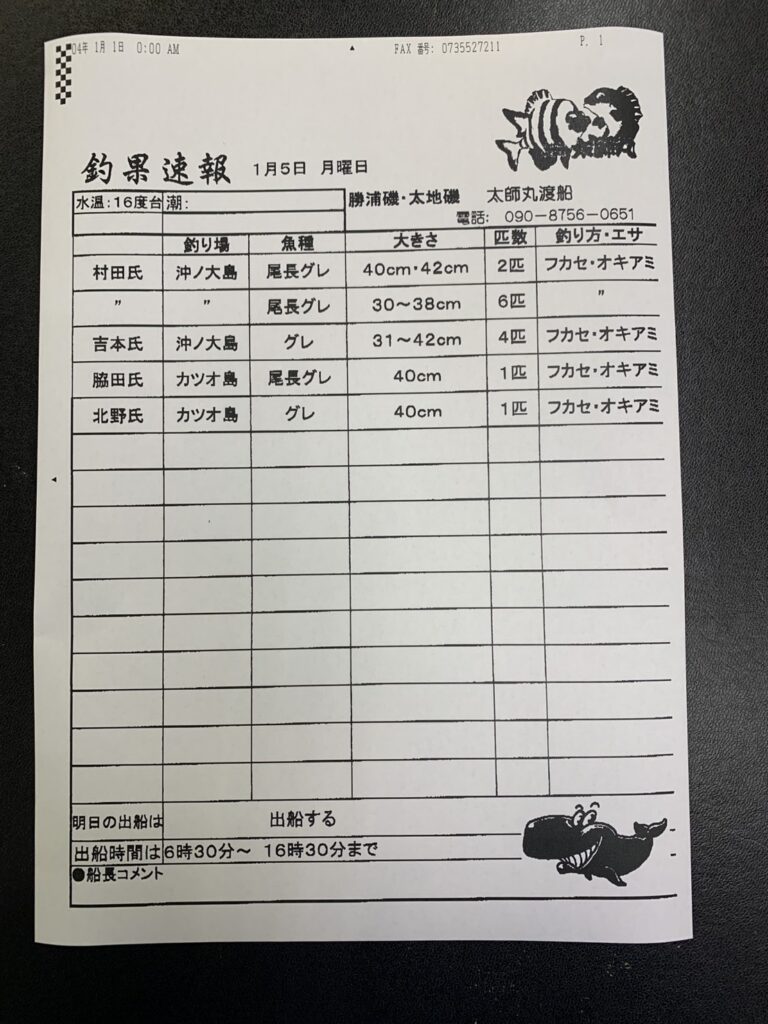 04年 1月 1日 0:00 AM FAX 番号: 0735527211 P. 1
釣果速報 1月5日 月曜日
水温:16度台 潮: 勝浦磯・太地磯 太師丸渡船
電話: 090-8756-0651
釣り場 魚種 大きさ 匹数 釣り方・エサ
村田氏 沖ノ大島 尾長グレ 40cm・42cm 2匹 フカセ・オキアミ
〃 〃 尾長グレ 30~38cm 6匹 〃
吉本氏 沖ノ大島 グレ 31~42cm 4匹 フカセ・オキアミ
脇田氏 カツオ島 尾長グレ 40cm 1匹 フカセ・オキアミ
北野氏 カツオ島 グレ 40cm 1匹 フカセ・オキアミ
明日の出船は 出船する
出船時間は 6時30分~ 16時30分まで
●船長コメント